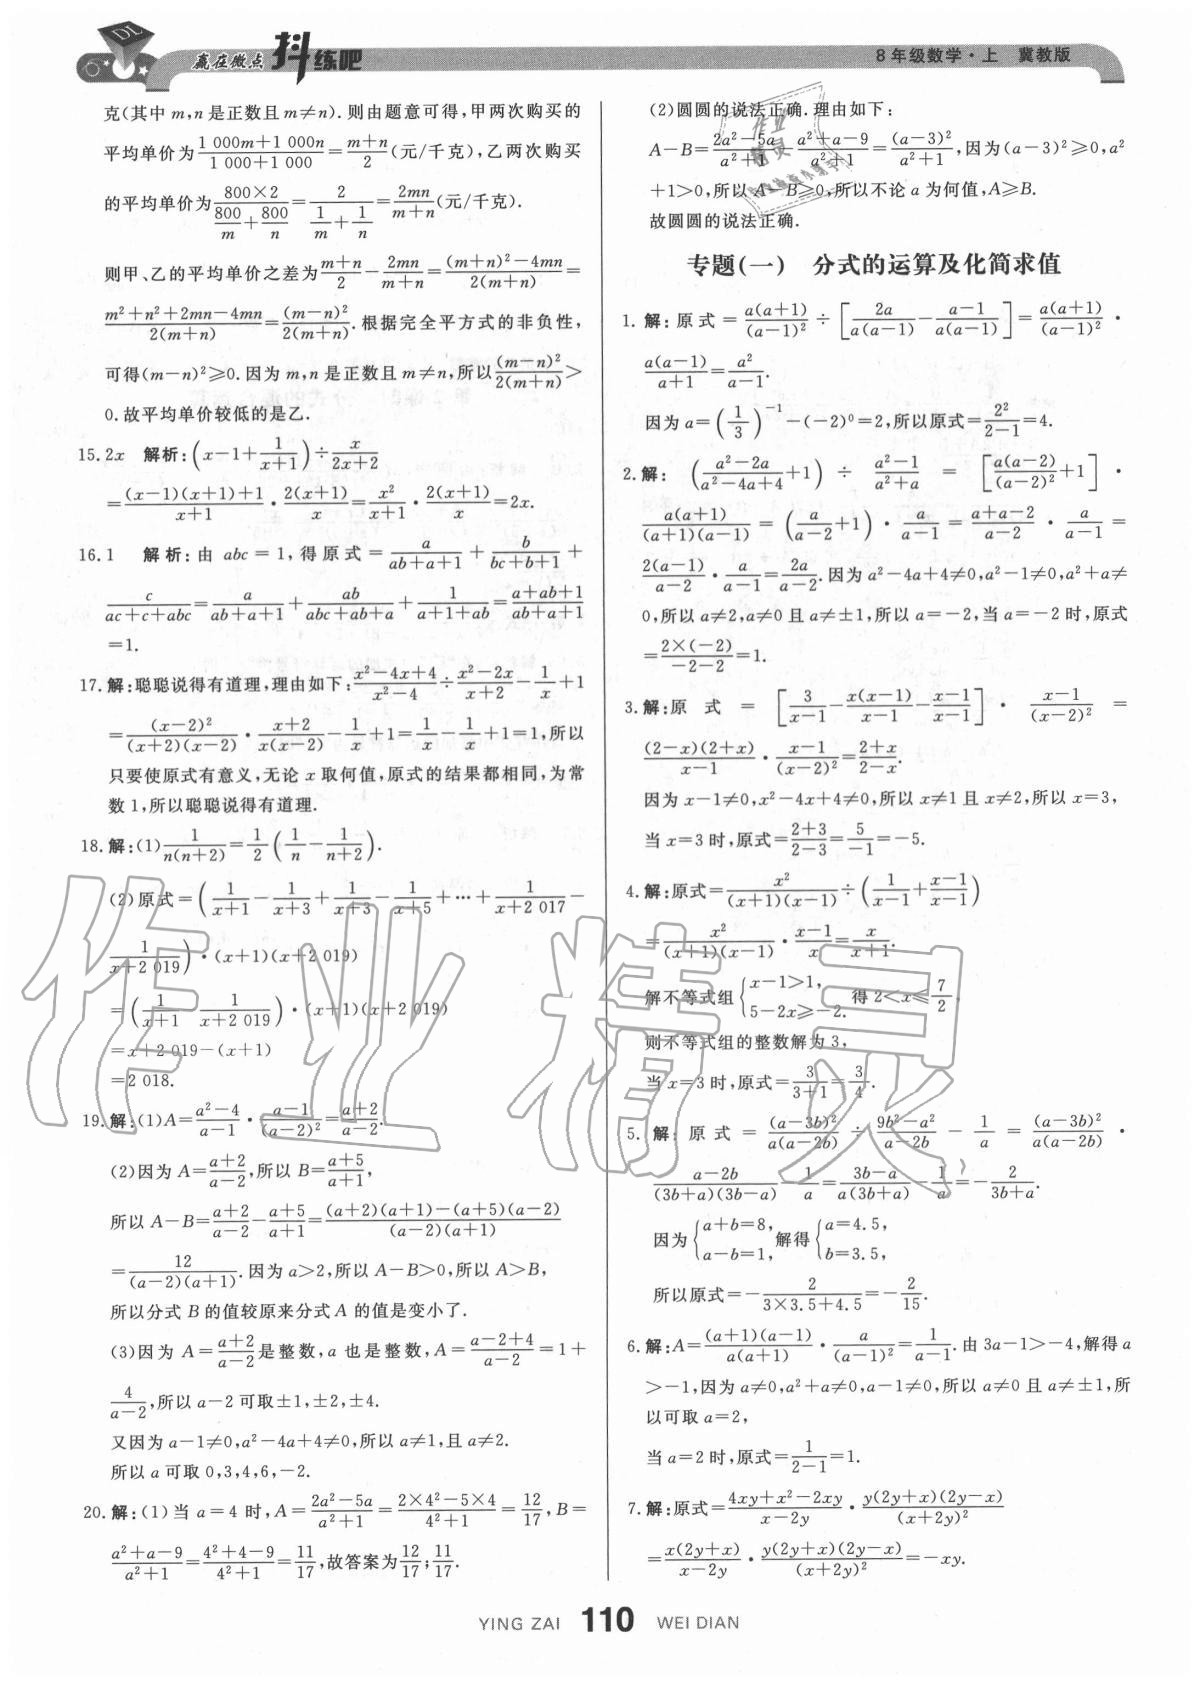 赢在微点 抖练吧
8年级数学·上 冀教版
克(其中 m,n 是正数且 m≠n).则由题意可得,甲两次购买的
平均单价为(1 000m+1 000n)/(1 000+1 000)=(m+n)/2(元/千克),乙两次购买
的平均单价为(800×2)/(800/m+800/n)=2/(1/m+1/n)=2mn/(m+n)(元/千克).
则甲、乙的平均单价之差为(m+n)/2-2mn/(m+n)=((m+n)²-4mn)/(2(m+n))=
(m²+n²+2mn-4mn)/(2(m+n))=(m-n)²/(2(m+n)).根据完全平方式的非负性,
可得(m-n)²≥0.因为 m,n 是正数且 m≠n,所以(m-n)²/(2(m+n))>
0.故平均单价较低的是乙.
15.2x 解析:(x-1+1/(x+1))÷x/(2x+2)
=((x-1)(x+1)+1)/(x+1)·2(x+1)/x=x²/(x+1)·2(x+1)/x=2x.
16.1 解析:由 abc=1,得原式=a/(ab+a+1)+b/(bc+b+1)+
c/(ac+c+abc)=a/(ab+a+1)+ab/(abc+ab+a)+1/(a+1+ab)=(a+ab+1)/(ab+a+1)
=1.
17.解:聪聪说得有道理,理由如下:(x²-4x+4)/(x²-4)÷(x²-2x)/(x+2)-1/x+1
=(x-2)²/((x+2)(x-2))·(x+2)/(x(x-2))-1/x+1=1/x-1/x+1=1,所以
只要使原式有意义,无论 x 取何值,原式的结果都相同,为常
数 1,所以聪聪说得有道理.
18.解:(1)1/(n(n+2))=1/2(1/n-1/(n+2)).
(2)原式=(1/(x+1)-1/(x+3)+1/(x+3)-1/(x+5)+…+1/(x+2 017)-
1/(x+2 019))·(x+1)(x+2 019)
=(1/(x+1)-1/(x+2 019))·(x+1)(x+2 019)
=x+2 019-(x+1)
=2 018.
19.解:(1)A=(a²-4)/(a-1)·(a-1)/(a-2)²=(a+2)/(a-2).
(2)因为 A=(a+2)/(a-2),所以 B=(a+5)/(a+1),
所以 A-B=(a+2)/(a-2)-(a+5)/(a+1)=((a+2)(a+1)-(a+5)(a-2))/((a-2)(a+1))
=12/((a-2)(a+1)).因为 a>2,所以 A-B>0,所以 A>B,
所以分式 B 的值较原来分式 A 的值是变小了.
(3)因为 A=(a+2)/(a-2)是整数,a 也是整数,A=(a-2+4)/(a-2)=1+
4/(a-2),所以 a-2 可取±1,±2,±4.
又因为 a-1≠0,a²-4a+4≠0,所以 a≠1,且 a≠2.
所以 a 可取 0,3,4,6,-2.
20.解:(1)当 a=4 时,A=(2a²-5a)/(a²+1)=(2×4²-5×4)/(4²+1)=12/17,B=
(a²+a-9)/(a²+1)=(4²+4-9)/(4²+1)=11/17,故答案为12/17;11/17.
(2)圆圆的说法正确.理由如下:
A-B=(2a²-5a)/(a²+1)-(a²+a-9)/(a²+1)=(a-3)²/(a²+1),因为(a-3)²≥0,a²
+1>0,所以 A-B≥0,所以不论 a 为何值,A≥B.
故圆圆的说法正确.
专题(一) 分式的运算及化简求值
1.解:原式=a(a+1)/(a-1)²÷[2a/(a(a-1))-(a-1)/(a(a-1))]=a(a+1)/(a-1)²·
a(a-1)/(a+1)=a²/(a-1).
因为 a=(1/3)⁻¹-(-2)⁰=2,所以原式=2²/(2-1)=4.
2.解:((a²-2a)/(a²-4a+4)+1)÷(a²-1)/(a²+a)=[a(a-2)/(a-2)²+1]·
a(a+1)/((a+1)(a-1))=(a/(a-2)+1)·a/(a-1)=(a+a-2)/(a-2)·a/(a-1)=
2(a-1)/(a-2)·a/(a-1)=2a/(a-2).因为 a²-4a+4≠0,a²-1≠0,a²+a≠
0,所以 a≠2,a≠0 且 a≠±1,所以 a=-2,当 a=-2 时,原式
=2×(-2)/(-2-2)=1.
3.解:原式=[3/(x-1)-x(x-1)/(x-1)-(x-1)/(x-1)]·(x-1)/(x-2)²=
(2-x)(2+x)/(x-1)·(x-1)/(x-2)²=(2+x)/(2-x).
因为 x-1≠0,x²-4x+4≠0,所以 x≠1 且 x≠2,所以 x=3,
当 x=3 时,原式=(2+3)/(2-3)=5/(-1)=-5.
4.解:原式=x²/((x+1)(x-1))÷(1/(x-1)+(x-1)/(x-1))
=x²/((x+1)(x-1))·(x-1)/x=x/(x+1).
解不等式组{x-1>1, 5-2x≥-2. 得 2<x≤7/2,
则不等式组的整数解为 3,
当 x=3 时,原式=3/(3+1)=3/4.
5.解:原式=(a-3b)²/(a(a-2b))÷(9b²-a²)/(a-2b)-1/a=(a-3b)²/(a(a-2b))·
(a-2b)/((3b+a)(3b-a))-1/a=(3b-a)/(a(3b+a))-1/a=-2/(3b+a).
因为{a+b=8, a-b=1, 解得{a=4.5, b=3.5,
所以原式=-2/(3×3.5+4.5)=-2/15.
6.解:A=(a+1)(a-1)/(a(a+1))·a/(a-1)²=1/(a-1).由 3a-1>-4,解得 a
>-1,因为 a≠0,a²+a≠0,a-1≠0,所以 a≠0 且 a≠±1,所
以可取 a=2,
当 a=2 时,原式=1/(2-1)=1.
7.解:原式=(4xy+x²-2xy)/(x-2y)·y(2y+x)(2y-x)/(x+2y)²
=x(2y+x)/(x-2y)·y(2y+x)(2y-x)/(x+2y)²=-xy.
作业精灵
YING ZAI 110 WEI DIAN